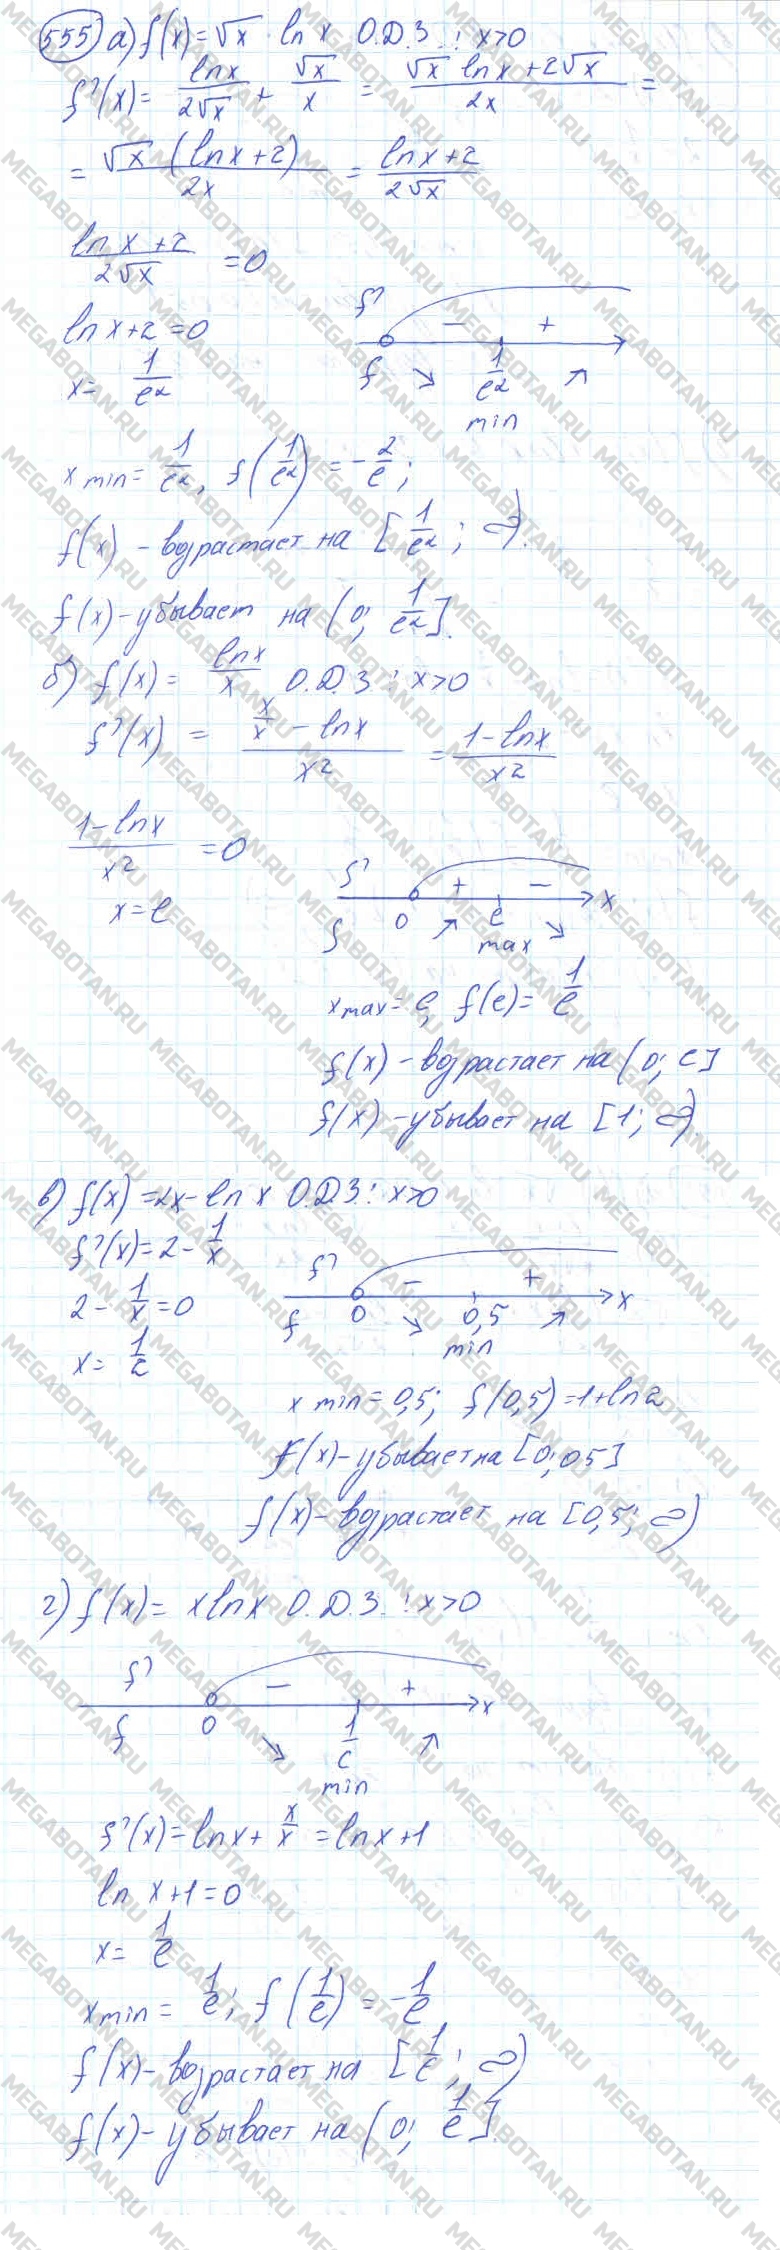 555) а) f(x) = √x · ln x О.Д.З.: x>0
f'(x) = ln x / 2√x + √x / x = (√x ln x + 2√x) / 2x =
= √x (ln x + 2) / 2x = (ln x + 2) / 2√x
(ln x + 2) / 2√x = 0
ln x + 2 = 0
x = 1/e²
f' − +
f ↘ 1/e² ↗
min
x min = 1/e², f(1/e²) = −2/e;
f(x) – возрастает на [1/e²; ∞).
f(x) – убывает на (0; 1/e²].
б) f(x) = ln x / x О.Д.З: x>0
f'(x) = (x/x − ln x) / x² = (1 − ln x) / x²
(1 − ln x) / x² = 0
x = e
f' + − x
f 0 ↗ e ↘
max
x max = e, f(e) = 1/e
f(x) – возрастает на (0; e]
f(x) – убывает на [1; ∞).
в) f(x) = 2x − ln x О.Д.З: x>0
f'(x) = 2 − 1/x
2 − 1/x = 0
x = 1/2
f' − + x
f 0 ↘ 0,5 ↗
min
x min = 0,5; f(0,5) = 1 + ln 2
f(x) – убывает на [0; 05]
f(x) – возрастает на [0,5; ∞)
г) f(x) = x ln x О.Д.З.: x>0
f' − + x
f 0 ↘ 1/e ↗
min
f'(x) = ln x + x/x = ln x + 1
ln x + 1 = 0
x = 1/e
x min = 1/e; f(1/e) = −1/e
f(x) – возрастает на [1/e; ∞)
f(x) – убывает на (0; 1/e].
MEGABOTAN.RU